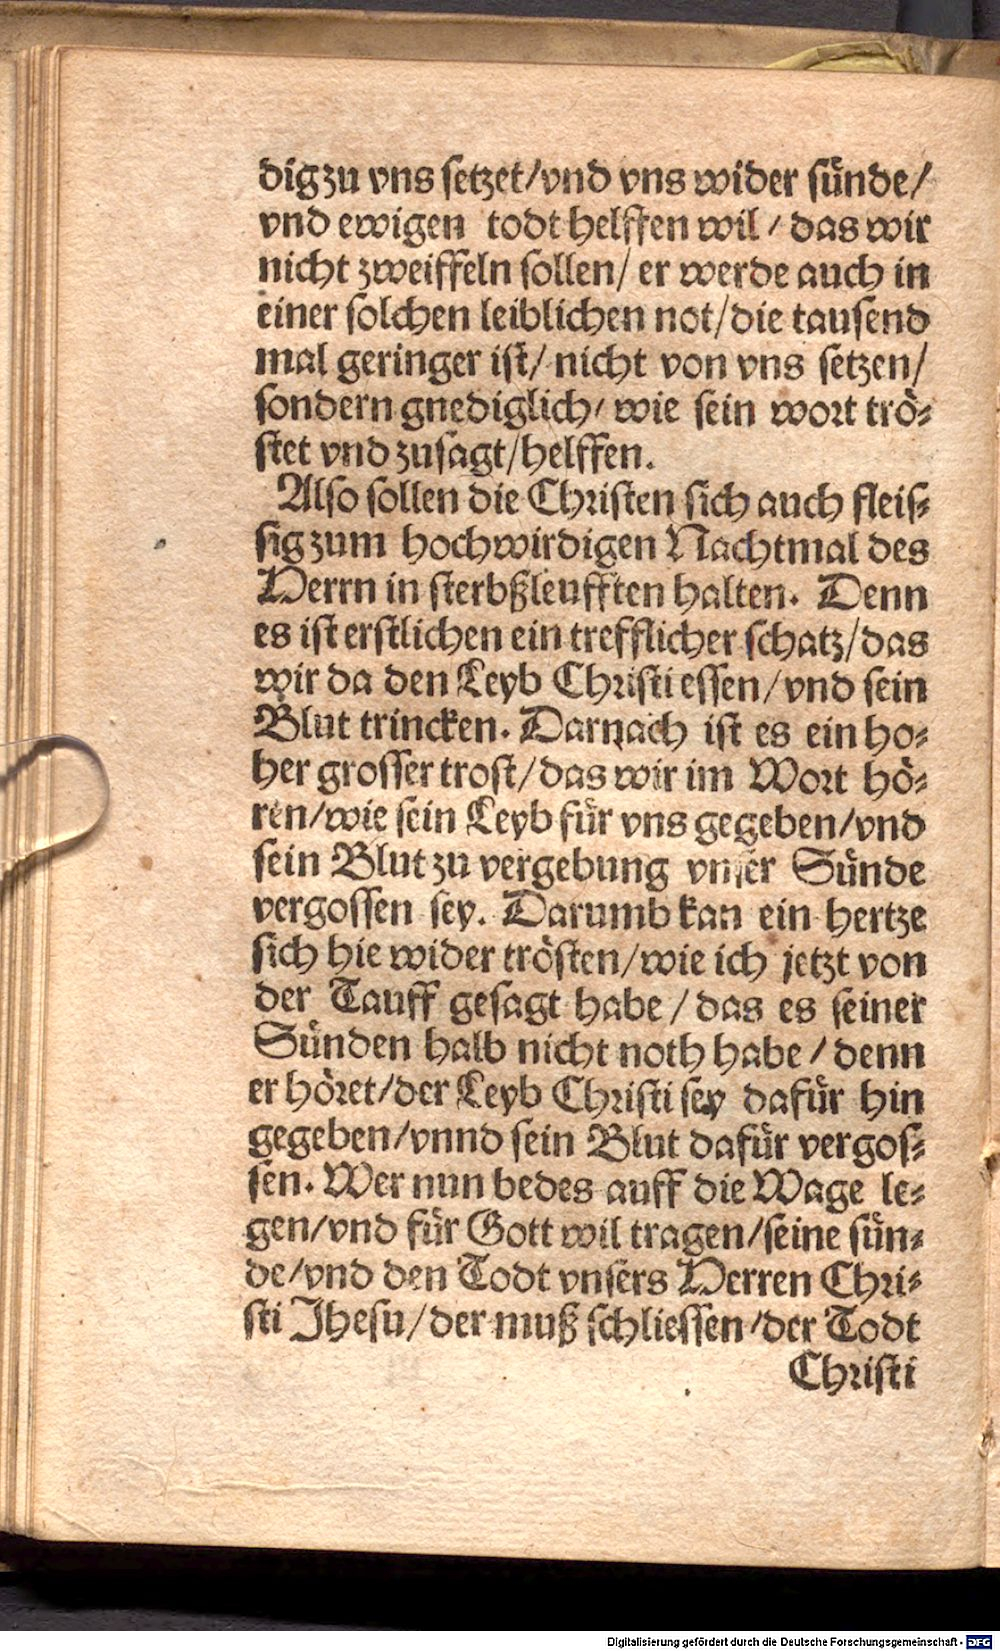 dig zu vns setzet/vnd vns wider sünde/
vnd ewigen todt helffen wil/ das wir
nicht zweiffeln sollen/ er werde auch in
einer solchen leiblichen not/die tausend
mal geringer ist/ nicht von vns setzen/
sondern gnediglich/ wie sein wort trö⸗
stet vnd zusagt/helffen.
Also sollen die Christen sich auch fleis⸗
sig zum hochwirdigen Nachtmal des
Herrn in sterbßleufften halten. Denn
es ist erstlichen ein trefflicher schatz/das
wir da den Leyb Christi essen/vnd sein
Blut trincken. Darnach ist es ein ho⸗
her grosser trost/das wir im Wort hö⸗
ren/wie sein Leyb für vns gegeben/vnd
sein Blut zu vergebung vnser Sünde
vergossen sey. Darumb kan ein hertze
sich hie wider trösten/wie ich jetzt von
der Tauff gesagt habe/ das es seiner
Sünden halb nicht noth habe/ denn
er höret/der Leyb Christi sey dafür hin
gegeben/vnnd sein Blut dafür vergos⸗
sen. Wer nun bedes auff die Wage le⸗
gen/vnd für Gott wil tragen/seine sün⸗
de/vnd den Todt vnsers Herren Chri⸗
sti Jhesu/der muß schliessen/der Todt
Christi
Digitalisierung gefördert durch die Deutsche Forschungsgemeinschaft - DFG